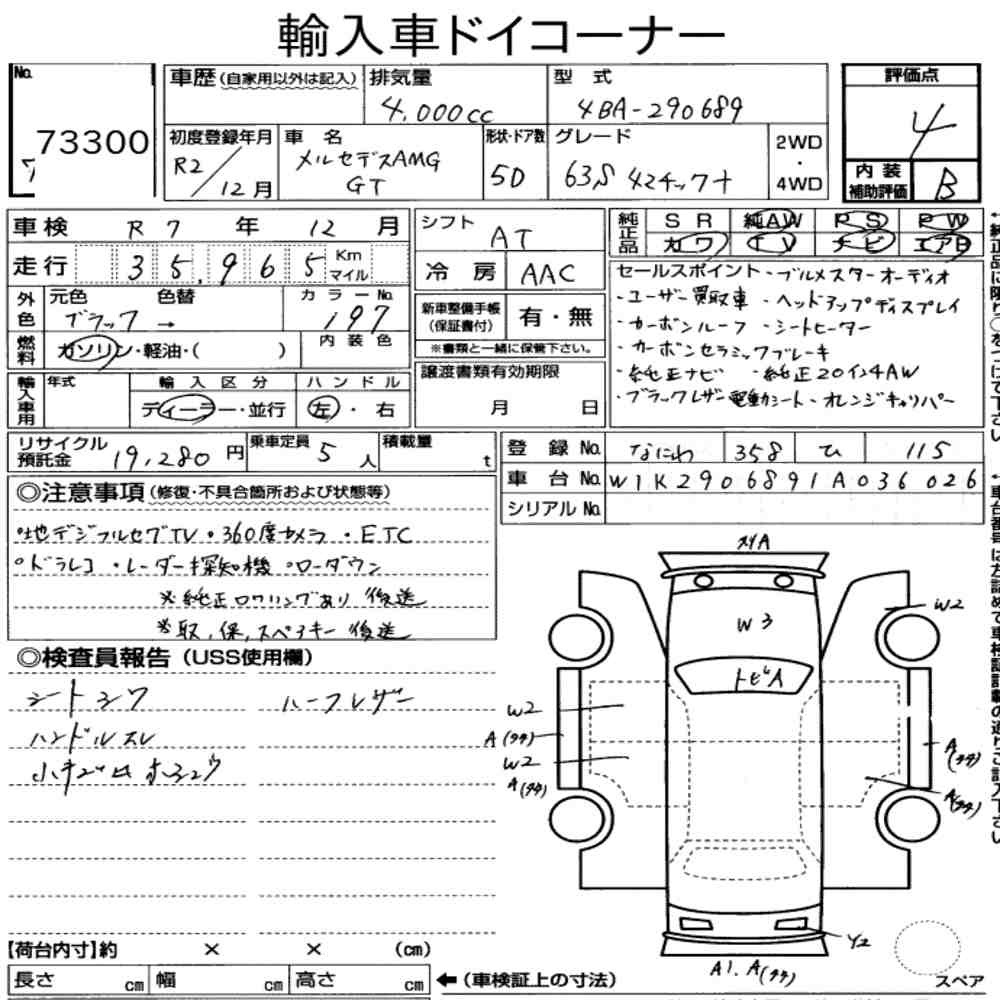 輸入車ドイコーナー
No.
73300
車歴 (自家用以外は記入)
排気量
4,000cc
型式
4BA-290689
評価点
4
内装補助評価
B
初度登録年月
R2/12月
車名
メルセデスAMG
GT
形状・ドア数
5D
グレード
63S 4マチック+
2WD
・
4WD
車検 R7年 12月
走行 35,965 Km マイル
外色
元色 ブラック →
色替
カラーNo. 197
燃料
ガソリン・軽油・( )
内装色
輸入車用
年式
輸入区分
ディーラー・並行
ハンドル
左・右
シフト AT
冷房 AAC
新車整備手帳(保証書付)
有・無
※書類と一緒に保管下さい。
譲渡書類有効期限
月 日
純正品
SR 純AW PS PW
カワ TV ナビ エアB
セールスポイント・ブルメスターオーディオ
・ユーザー買取車 ・ヘッドアップディスプレイ
・カーボンルーフ ・シートヒーター
・カーボンセラミックブレーキ
・純正ナビ ・純正20インチAW
・ブラックレザー電動シート・オレンジキャリパー
リサイクル預託金 19,280円
乗車定員 5人
積載量 t
登録No. なにわ 358 ひ 115
車台No. W1K2906891A036026
シリアルNo.
◎注意事項(修復・不具合箇所および状態等)
・地デジフルセグTV・360度カメラ・ETC
・ドラレコ・レーダー探知機・ローダウン
※純正ロワリングあり 後送
※取,保,スペアキー 後送
◎検査員報告(USS使用欄)
シートシワ ハーフレザー
ハンドルスレ
W3
トビA
W2
W2
A(タチ)
W2
A(タチ)
A(タチ)
A(タチ)
Y2
A1.A(タチ)
スペア
【荷台内寸】約 × × (cm)
長さ cm 幅 cm 高さ cm
←(車検証上の寸法)